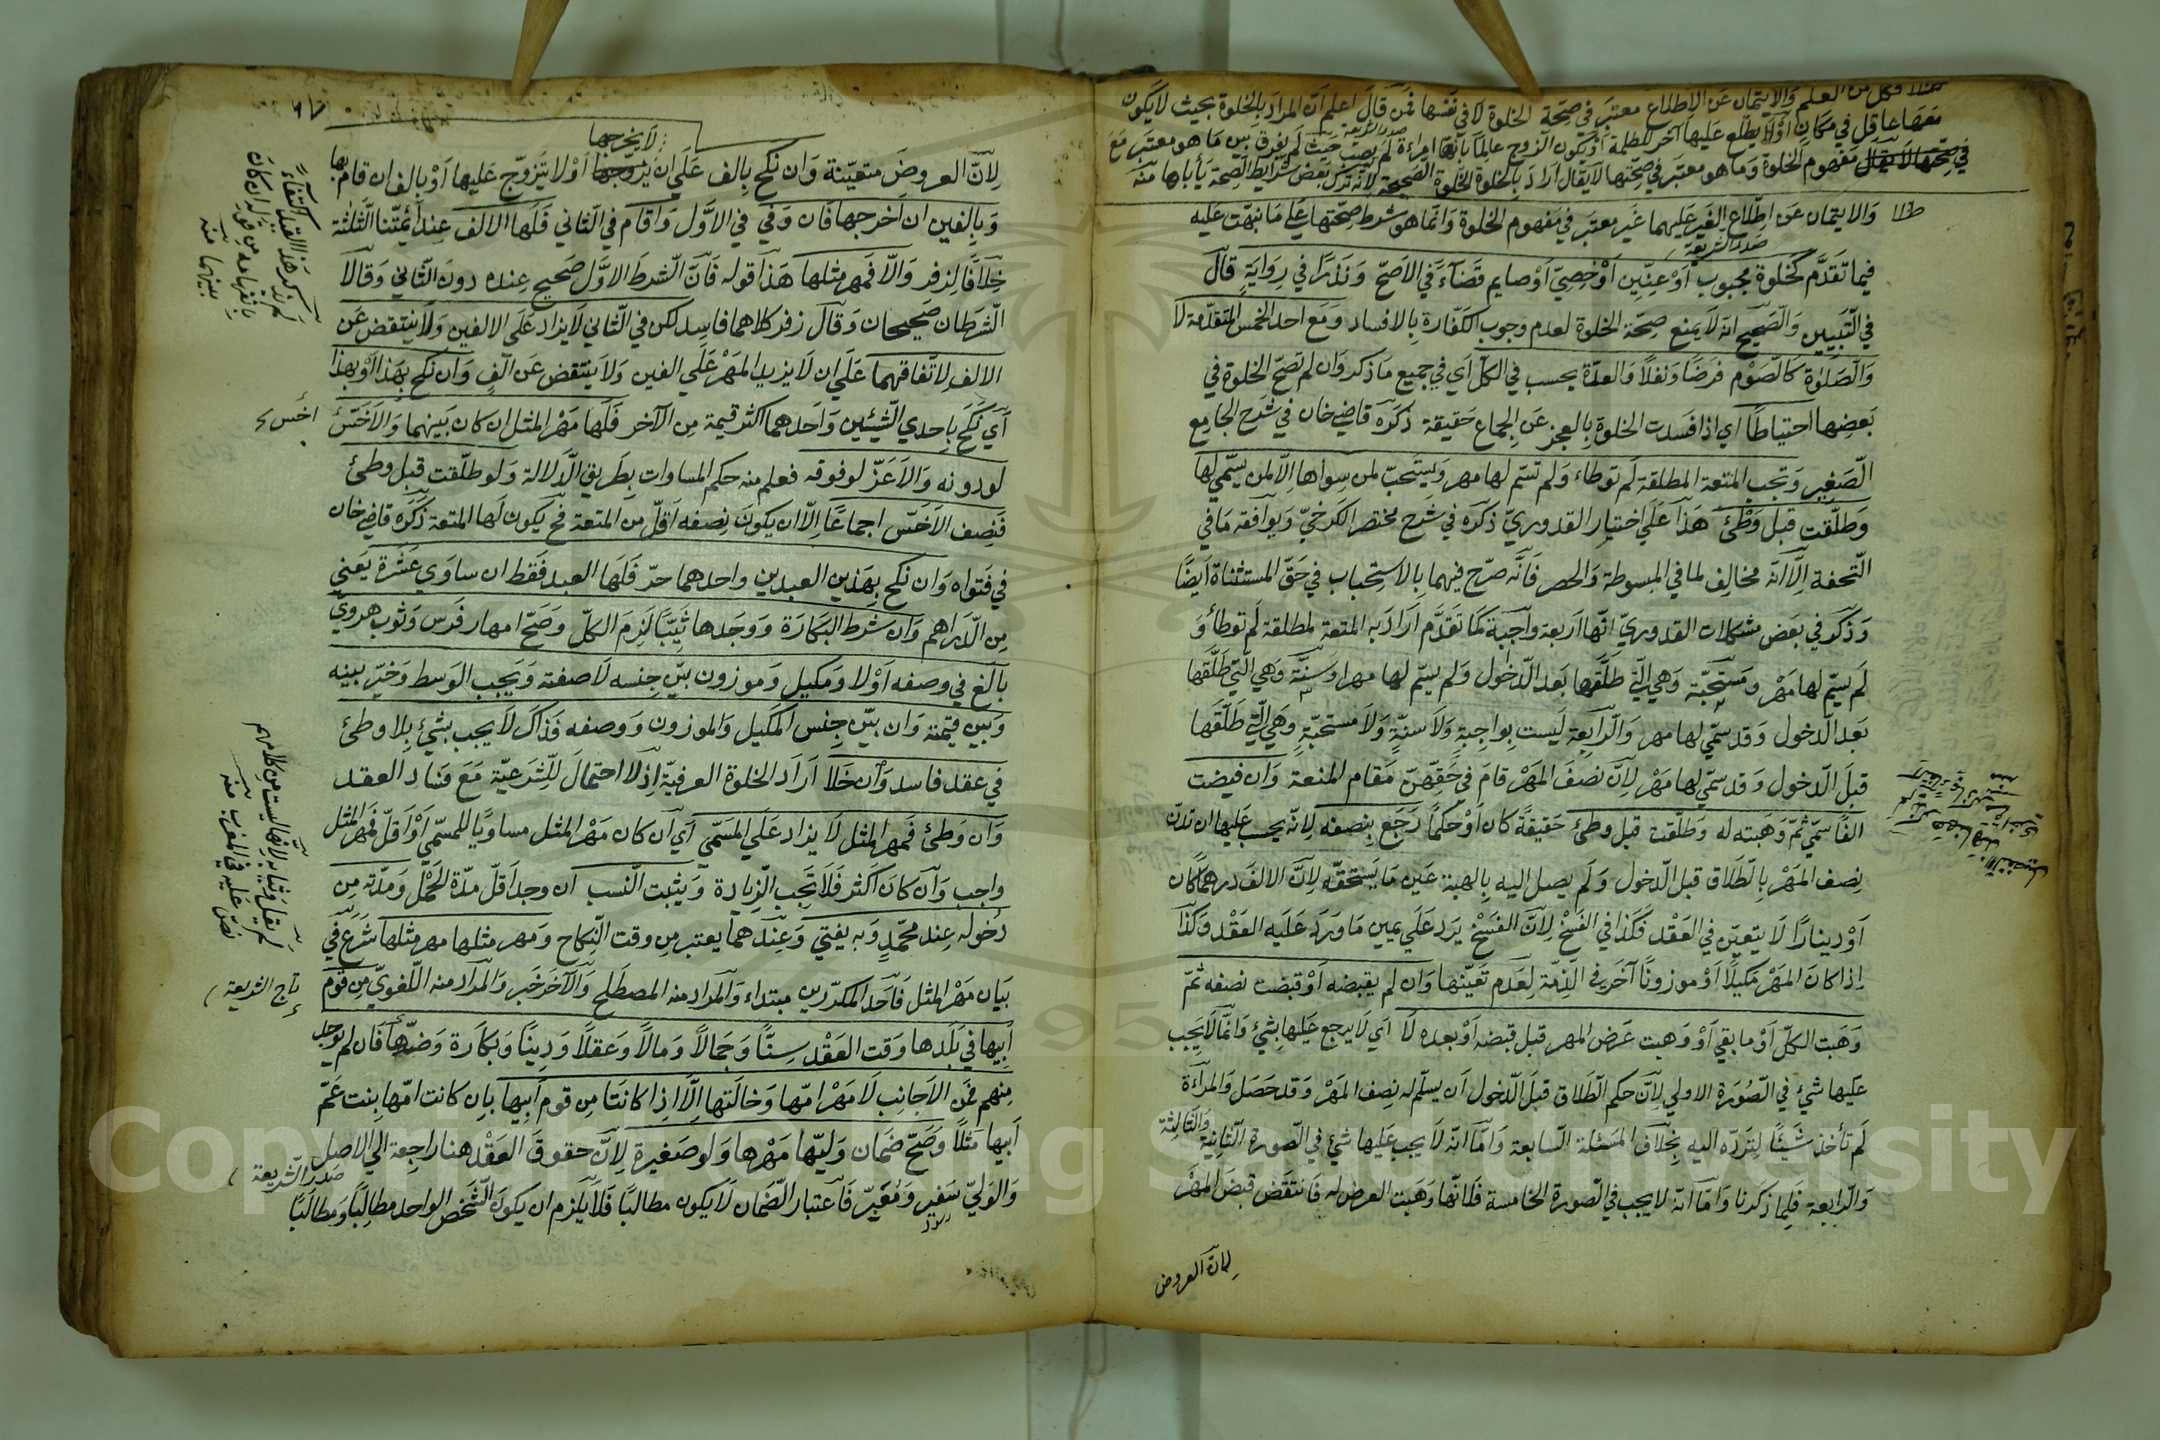 فكل من العلم والايتمان عن الاطلاع معتبر في صحة الخلوة لا في نفسها فمن قال اعلم ان المراد بالخلوة بحيث لا يكون
معها عاقل في مكان اولا يطلع عليها آخر للظلمة او يكون الزوج عالما بانها امراءة لم يصب حيث لم يفرق بين ما هو معتبر مع
صدر الشريعة
مفهوم الخلوة وما هو معتبر في صحتها لا يقال اراد بالخلوة الخلوة الصحيحة لانه ترك بعض شرايط الصحة يأباها منه
والايتمان عن اطلاع الغير عليهما غير معتبر في مفهوم الخلوة وانما هو شرط صحتها على ما نبهت عليه
صدر الشريعة
فيما تقدم كخلوة مجبوب او عنين او خصي او صايم قضآء في الاصح ونذرا في رواية قال
في التبيين والصحيح انه لا يمنع صحة الخلوة لعدم وجوب الكفارة بالافساد ومع احد الخمس المتقدمة لا
والصلوة كالصوم فرضا ونفلا والعدة يحسب في الكل اي في جميع ما ذكر وان لم تصح الخلوة في
بعضها احتياطا اي اذا فسدت الخلوة بالعجز عن الجماع حقيقة ذكره قاضي خان في شرح الجامع
الصغير وتجب المتعة المطلقة لم توطاء ولم تسم لها مهر ويستحب لمن سواها الا لمن يسمي لها
وطلقت قبل وطئ هذا على اختيار القدوري ذكره في شرح مختصر الكرخي ويوافقه ما في
التحفة الا انه مخالف لما في المبسوطة والحصر فانه صرح فيهما بالاستحباب في حق المستثناة ايضا
وذكر في بعض مشكلات القدوري انها اربعة واجبة كما تقدم اراد به المتعة لمطلقة لم توطأ و
لم يسم لها مهر ومستحبة وهي التي طلقها بعد الدخول ولم يسم لها مهرا وسنة وهي التي طلقها
بعد الدخول وقد سمي لها مهر والرابعة ليست بواجبة ولا سنة ولا مستحبة وهي التي طلقها
قبل الدخول وقد سمي لها مهر لان نصف المهر قام في حقهن مقام المتعة وان قبضت
الفا سمي ثم وهبته له وطلقت قبل وطئ حقيقة كان او حكما رجع بنصفه لانه يجب عليها ان ترد
نصف المهر بالطلاق قبل الدخول ولم يصل اليه بالهبة عين ما يستحقه لان الالف درهما كان
او دينارا لا يتعين في العقد فكذا في الفسخ لان الفسخ يرد على عين ما ورد عليه العقد وكذا
اذا كان المهر مكيلا او موزونا آخر في الذمة لعدم تعينها وان لم يقبضه او قبضت نصفه ثم
وهبت الكل او ما بقي او وهبت عرض المهر قبل قبضه او بعده لا اي لا يرجع عليها بشئ وانما لا يجب
عليها شئ في الصورة الاولي لان حكم الطلاق قبل الدخول ان يسلم له نصف المهر وقد حصل والمراءة
لم تأخذ شيئا لترده اليه بخلاف المسئلة السابعة واما انه لا يجب عليها شئ في الصورة الثانية والثالثة
والرابعة فلما ذكرنا واما انه لا يجب في الصورة الخامسة فلانها وهبت العرض له فانتقض قبض المهر
لان العروض
لا يخرجها
لان العروض متعينة وان نكح بالف على ان لا يخرجها او لا يتزوج عليها او بالف ان قام بها
وبالفين ان اخرجها فان وفي في الاول واقام في الثاني فلها الالف عند أئمتنا الثلثة
خلافا لزفر والا فمهر مثلها هذا قوله فان الشرط الاول صحيح عنده دون الثاني وقالا
الشرطان صحيحان وقال زفر كلاهما فاسد لكن في الثاني لا يزاد على الالفين ولا ينتقض عن
الالف لاتفاقهما على ان لا يزيد المهر على الفين ولا ينتقض عن الف وان نكح بهذا او بهذا
اي نكح باحدي الشيئين واحدهما اكثر قيمة من الآخر فلها مهر المثل ان كان بينهما والاخس
لو دونه والاعز لو فوقه فعلم منه حكم المساوات بطريق الدلالة ولو طلقت قبل وطئ
فنصف الاخس اجماعا الا ان يكون نصفه اقل من المتعة فح يكون لها المتعة ذكره قاضي خان
في فتواه وان نكح بهذين العبدين واحدهما حر فلها العبد فقط ان ساوي عشرة يعني
من الدراهم وان شرط البكارة ووجدها ثيبا لزم الكل وصح امهار فرس وثوب هروي
بالغ في وصفه اولا ومكيل وموزون بين جنسه لا صفته ويجب الوسط وخير بينه
وبين قيمته وان بين جنس المكيل والموزون ووصفه فذاك لا يجب بشئ بلا وطئ
في عقد فاسد وان خلا اراد الخلوة العرفية اذ لا احتمال للشرعية مع فساد العقد
وان وطئ فمهر المثل لا يزاد على المسمي اي ان كان مهر المثل مساويا للمسمي او اقل فمهر المثل
واجب وان كان اكثر فلا تجب الزيادة ويثبت النسب ان وجد اقل مدة الحمل ومدته من
دخوله عند محمد وبه يفتي وعندهما يعتبر من وقت النكاح ومهر مثلها مهر مثلها شرع في
بيان مهر المثل فاحد المكررين مبتداء والمراد منه المصطلح والآخر خبر والمراد منه اللغوي من قوم
تاج الشريعة
ابيها في بلدها وقت العقد سنا وجمالا ومالا وعقلا ودينا وبكارة وضدها فان لم يوجد
منهم فمن الاجانب لا مهر امها وخالتها الا اذا كانتا من قوم ابيها بان كانت امها بنت عم
ابيها مثلا وصح ضمان وليها مهرها ولو صغيرة لان حقوق العقد هنا راجعة الي الاصل
صدر الشريعة
والولي سفير ومعبر فاعتبار الضمان لا يكون مطالبا فلا يلزم ان يكون الشخص الواحد مطالبا ومطالبا
Copyright © King Saud University